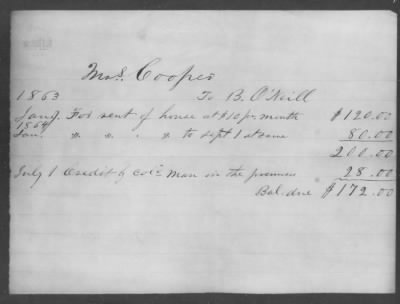 Mrs. Cooper
1863 To B. O'Neill
Jany. For rent of house at $10 pr. month $120.00
1864
Jan. " " " " to Sept 1 at same 80.00
200.00
July 1 Credit by Col'd Man in the premises 28.00
Bal. due $172.00